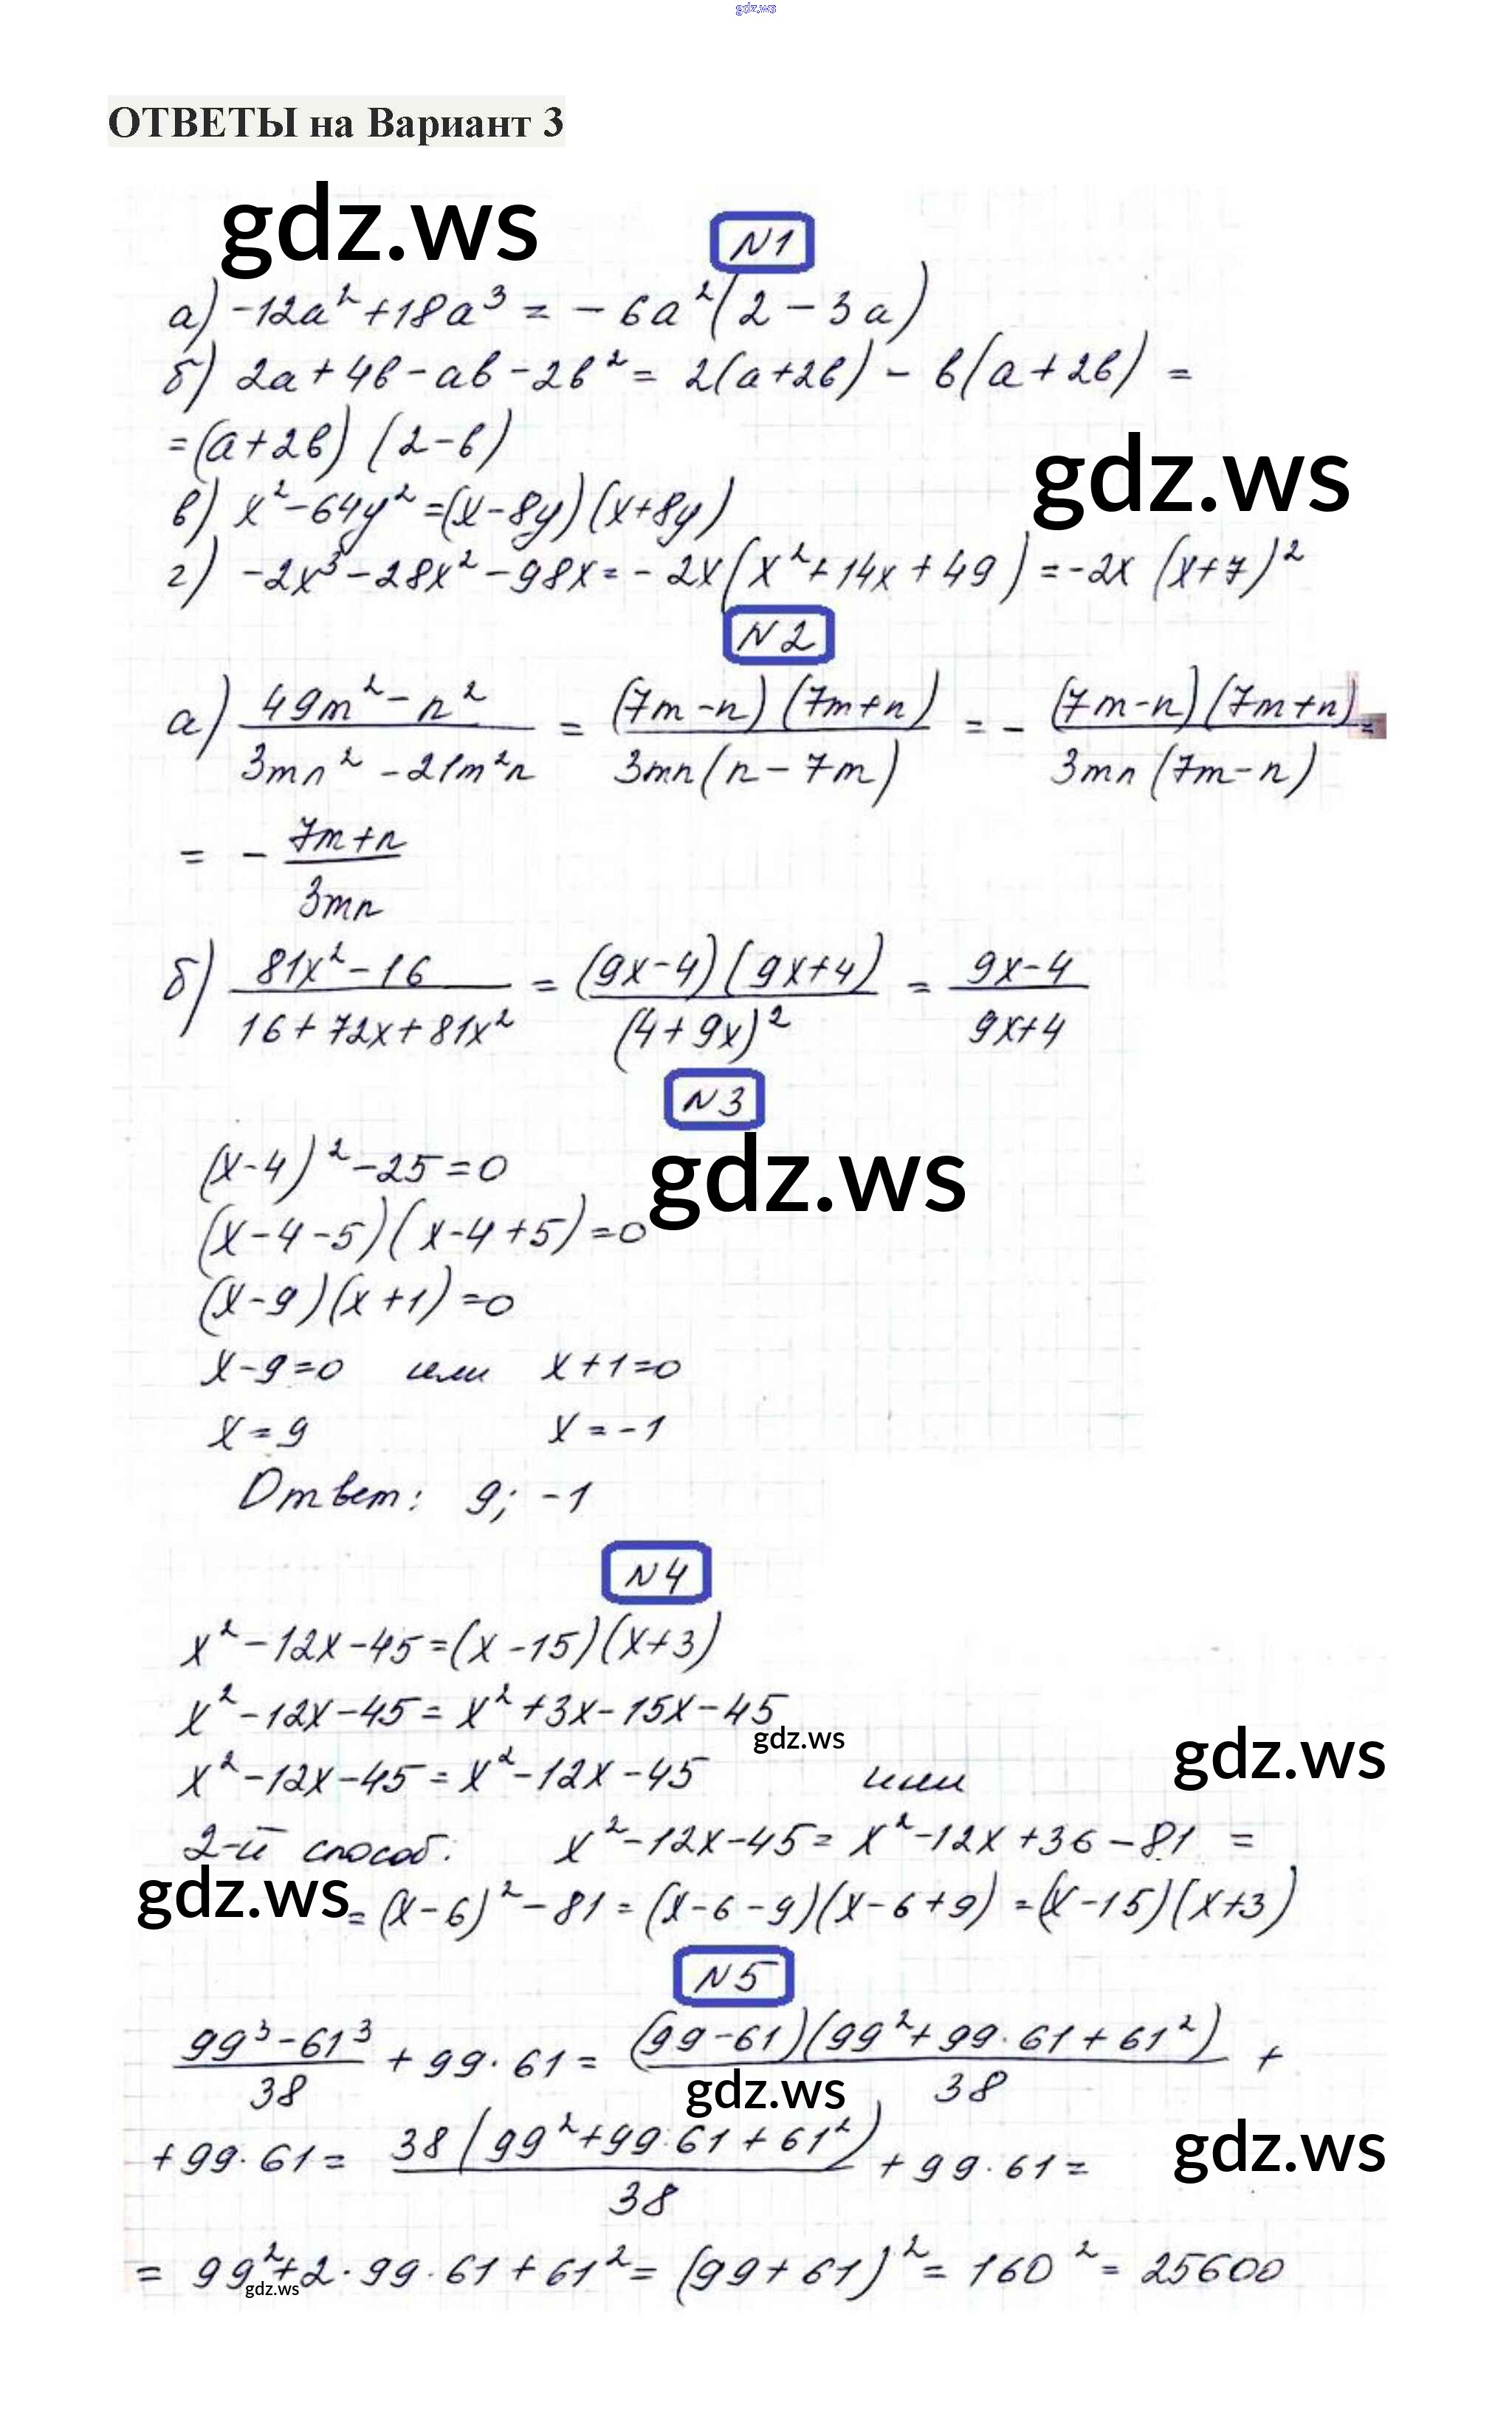 gdz.ws
ОТВЕТЫ на Вариант 3
gdz.ws
N1
а) -12a² + 18a³ = - 6a²(2 - 3a)
б) 2a + 4b - ab - 2b² = 2(a+2b) - b(a+2b) =
= (a+2b) (2-b)
gdz.ws
в) x² - 64y² = (x-8y)(x+8y)
г) -2x³ - 28x² - 98x = - 2x(x² + 14x + 49) = -2x (x+7)²
N2
а) (49m² - n²)/(3mn² - 21m²n) = ((7m-n)(7m+n))/(3mn(n-7m)) = - ((7m-n)(7m+n))/(3mn(7m-n)) =
= - (7m+n)/(3mn)
б) (81x² - 16)/(16 + 72x + 81x²) = ((9x-4)(9x+4))/((4+9x)²) = (9x-4)/(9x+4)
N3
(x-4)² - 25 = 0
gdz.ws
(x-4-5)(x-4+5) = 0
(x-9)(x+1) = 0
x-9=0 или x+1=0
x = 9 x = -1
Ответ: 9; -1
N4
x² - 12x - 45 = (x-15)(x+3)
x² - 12x - 45 = x² + 3x - 15x - 45
gdz.ws
gdz.ws
x² - 12x - 45 = x² - 12x - 45 или
2-й способ: x² - 12x - 45 = x² - 12x + 36 - 81 =
gdz.ws
= (x-6)² - 81 = (x-6-9)(x-6+9) = (x-15)(x+3)
N5
(99³ - 61³)/38 + 99·61 = ((99-61)(99² + 99·61 + 61²))/38 +
gdz.ws
+ 99·61 = (38(99² + 99·61 + 61²))/38 + 99·61 =
gdz.ws
= 99² + 2·99·61 + 61² = (99+61)² = 160² = 25600
gdz.ws